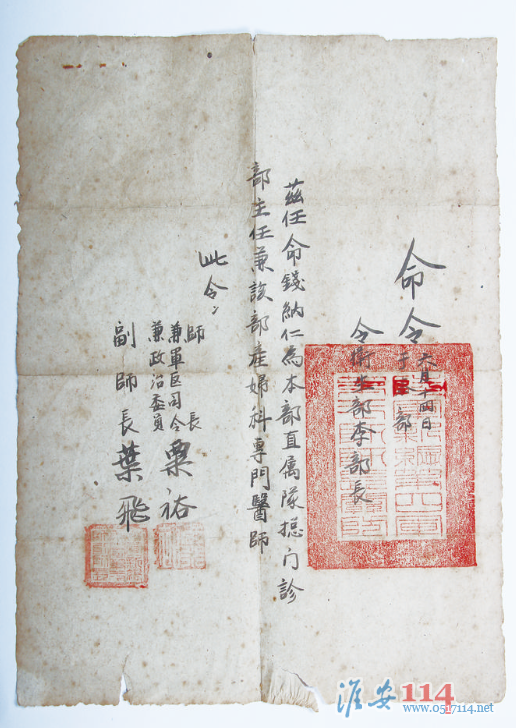 命令
六月十四日
于 部
令衛生部李部長
茲任命錢納仁為本部直属隊摠门診
部主任兼該部產婦科專門醫師
此令
師長
兼軍區司令
兼政治委員
粟裕
副師長葉飛
淮安114
www.0517114.net